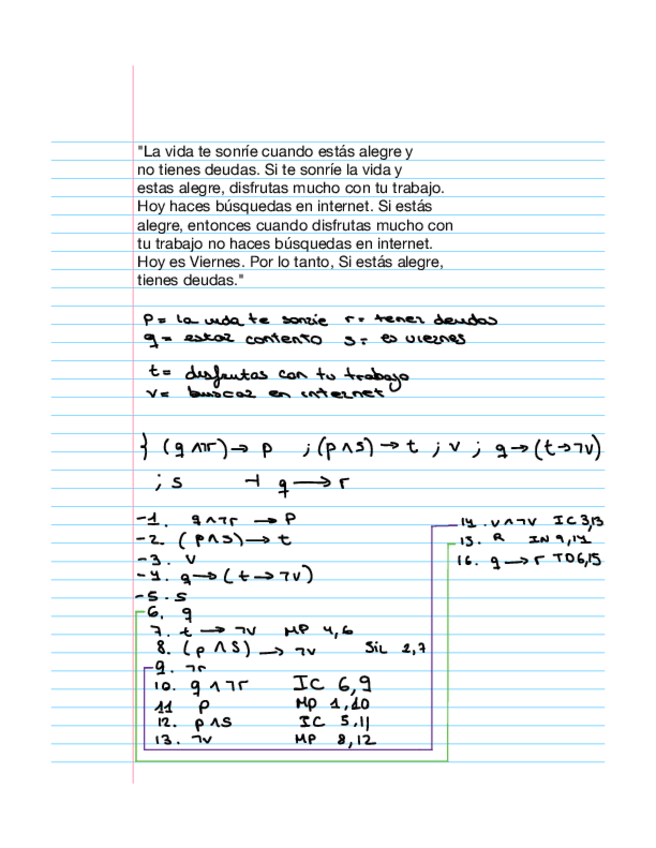 "La vida te sonríe cuando estás alegre y
no tienes deudas. Si te sonríe la vida y
estas alegre, disfrutas mucho con tu trabajo.
Hoy haces búsquedas en internet. Si estás
alegre, entonces cuando disfrutas mucho con
tu trabajo no haces búsquedas en internet.
Hoy es Viernes. Por lo tanto, Si estás alegre,
tienes deudas."
p= la vida te sonríe r= tener deudas
q= estar contento s= es viernes
t= disfrutas con tu trabajo
v= buscar en internet
} (q ∧¬r)→ p ; (p∧s)→ t ; v ; q→(t→¬v)
; s ⊣ q → r
-1. q∧¬r → P
-2. (p∧s)→ t
-3. v
-4. q→(t→¬v)
-5. s
6. q
7. t → ¬v MP 4,6
8. (p ∧ s) → ¬v Sil 2,7
9. ¬r
10. q ∧ ¬r IC 6,9
11 p MP 1,10
12. p∧s IC 5,11
13. ¬v MP 8,12
14. v∧¬v IC 3,13
15. R IN 9,14
16. q → r TD 6,15